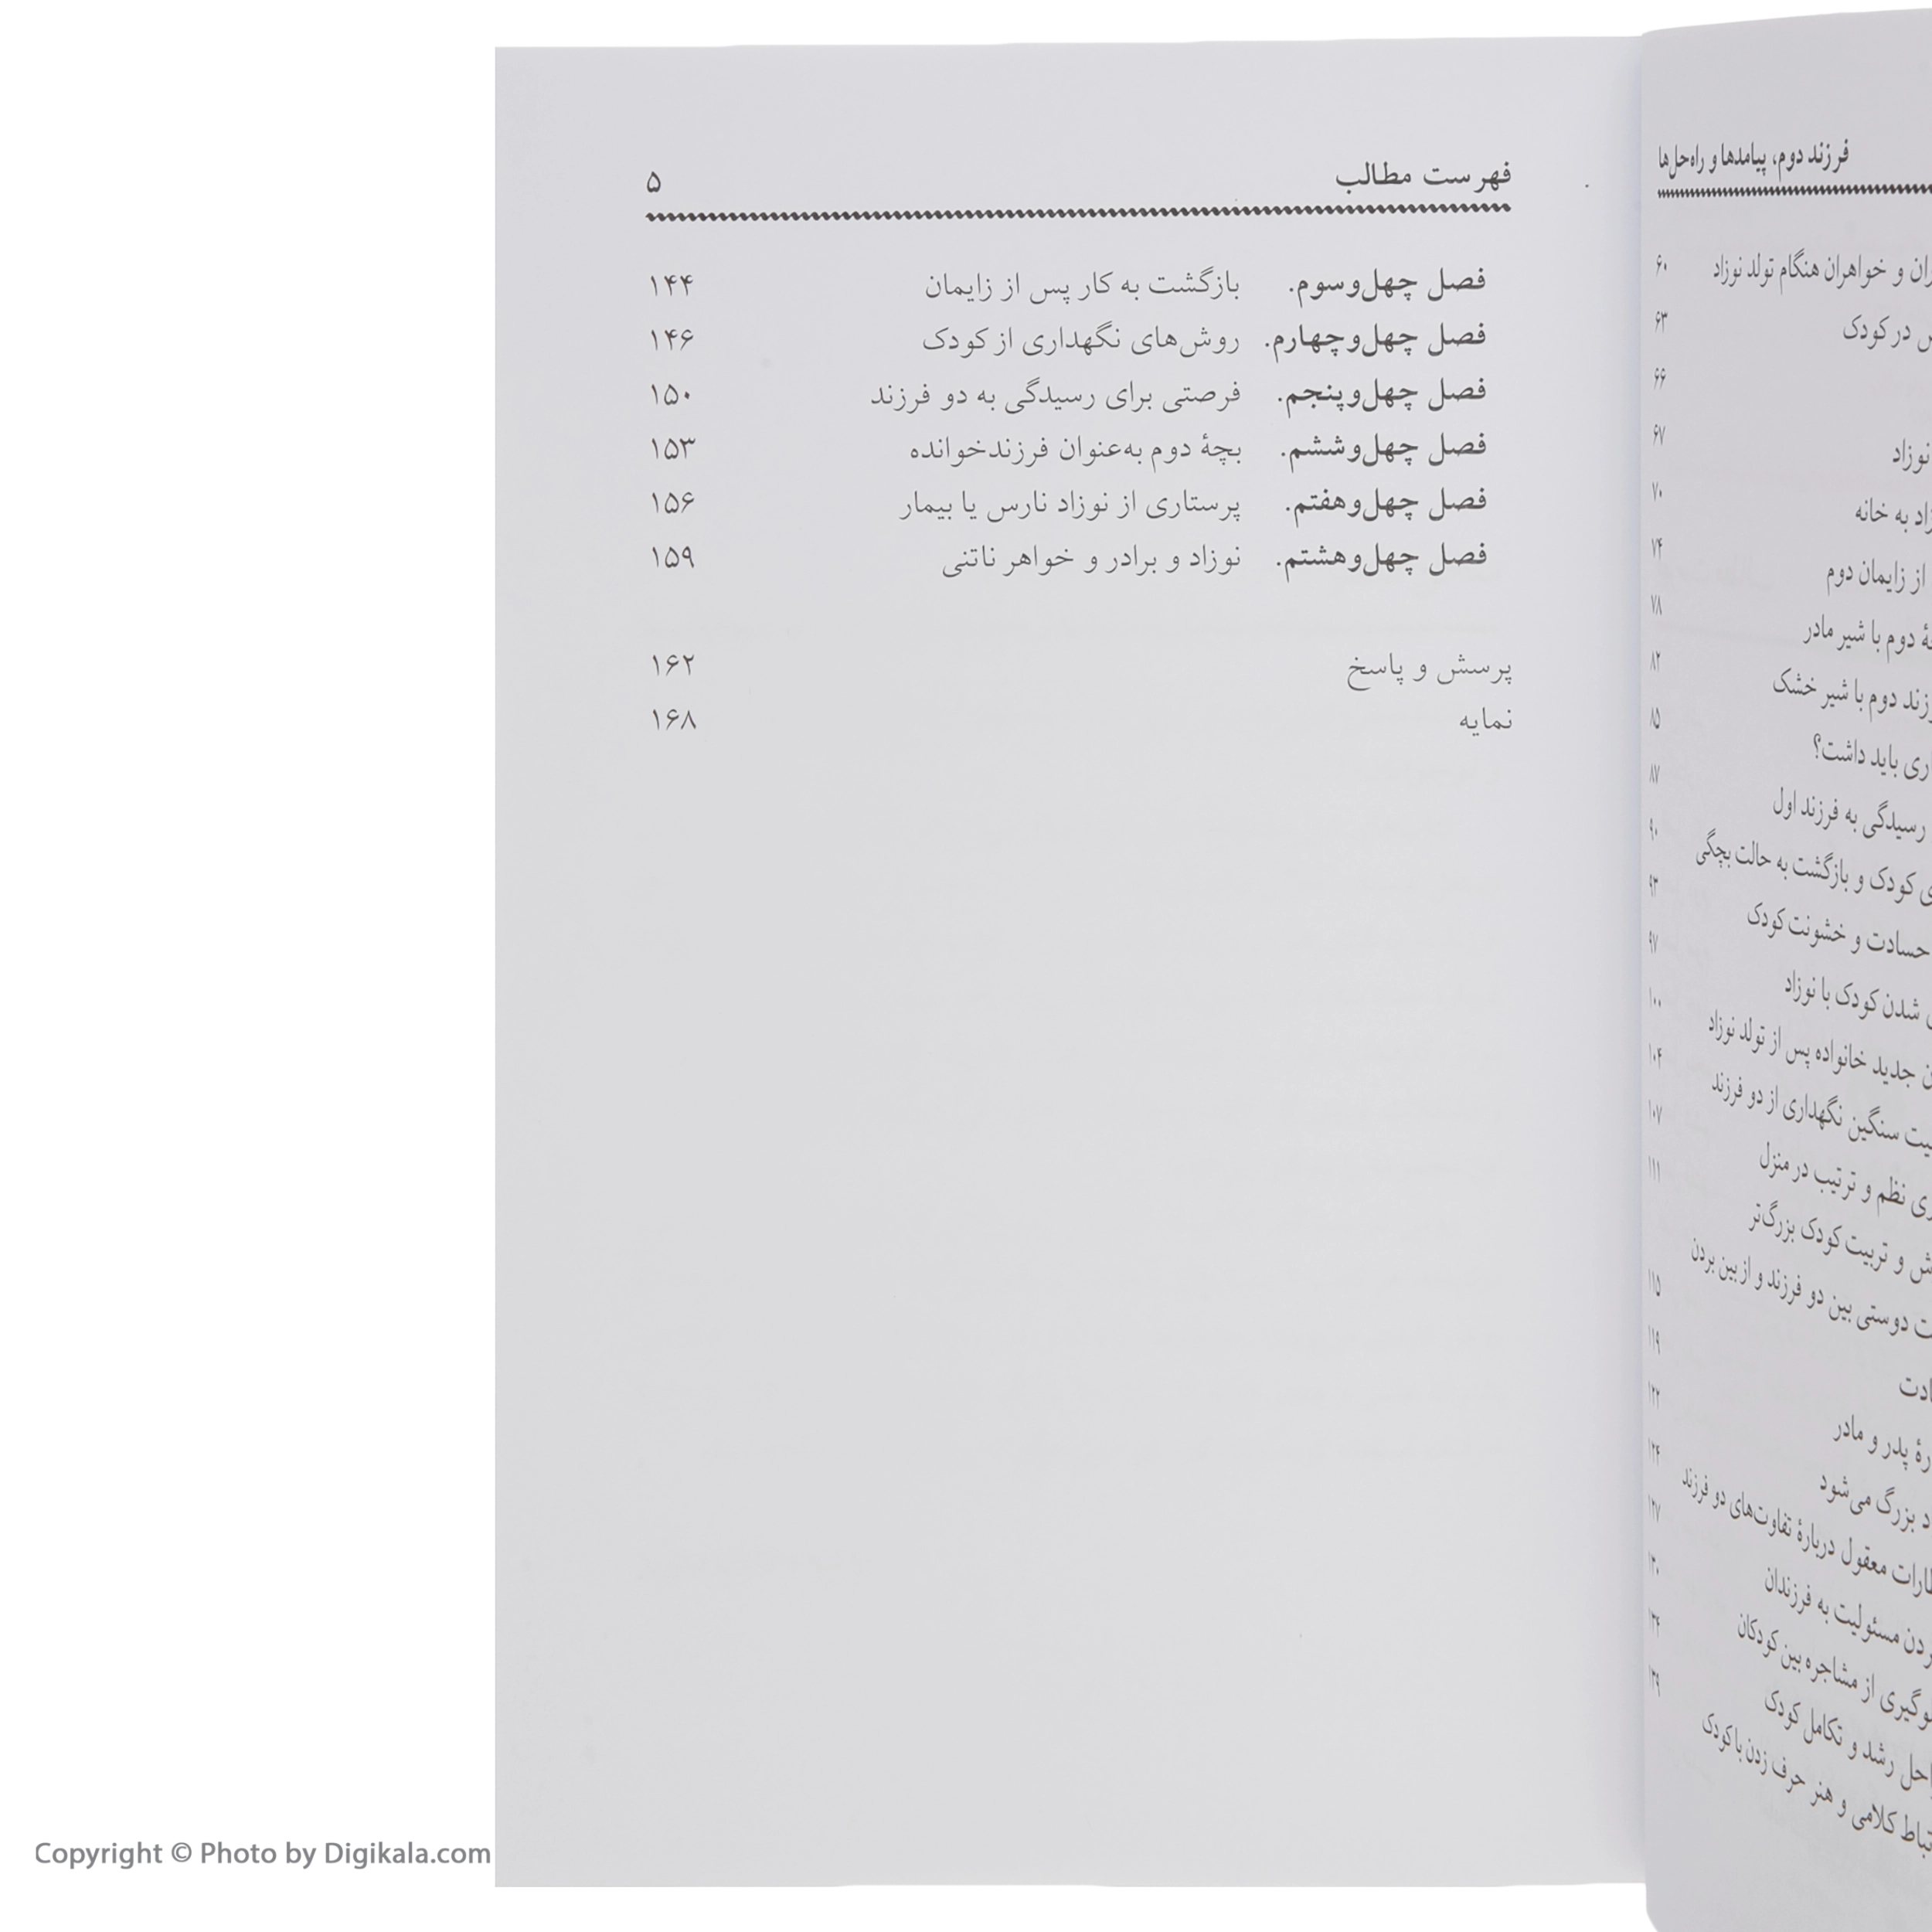 فرزند دوم، پیامدها و راه‌حل‌ها
و خواهران هنگام تولد نوزاد ۶۰
در کودک ۶۳
۶۶
نوزاد ۶۷
به خانه ۷۰
از زایمان دوم ۷۴
دوم با شیر مادر ۷۸
دوم با شیر خشک ۸۲
باید داشت؟ ۸۵
رسیدگی به فرزند اول ۸۷
کودک و بازگشت به حالت بچگی ۹۰
حسادت و خشونت کودک ۹۳
شدن کودک با نوزاد ۹۷
جدید خانواده پس از تولد نوزاد ۱۰۰
سنگین نگهداری از دو فرزند ۱۰۴
نظم و ترتیب در منزل ۱۰۷
و تربیت کودک بزرگ‌تر ۱۱۱
دوستی بین دو فرزند و از بین بردن
۱۱۵
پدر و مادر ۱۱۹
بزرگ می‌شود ۱۲۲
معقول دربارهٔ تفاوت‌های دو فرزند ۱۲۴
مسئولیت به فرزندان ۱۲۷
از مشاجره بین کودکان ۱۳۰
رشد و تکامل کودک ۱۳۴
کلامی و هنر حرف زدن با کودک ۱۳۹
فهرست مطالب ۵
فصل چهل‌وسوم. بازگشت به کار پس از زایمان ۱۴۴
فصل چهل‌وچهارم. روش‌های نگهداری از کودک ۱۴۶
فصل چهل‌وپنجم. فرصتی برای رسیدگی به دو فرزند ۱۵۰
فصل چهل‌وششم. بچهٔ دوم به‌عنوان فرزندخوانده ۱۵۳
فصل چهل‌وهفتم. پرستاری از نوزاد نارس یا بیمار ۱۵۶
فصل چهل‌وهشتم. نوزاد و برادر و خواهر ناتنی ۱۵۹
پرسش و پاسخ ۱۶۲
نمایه ۱۶۸
Copyright © Photo by Digikala.com